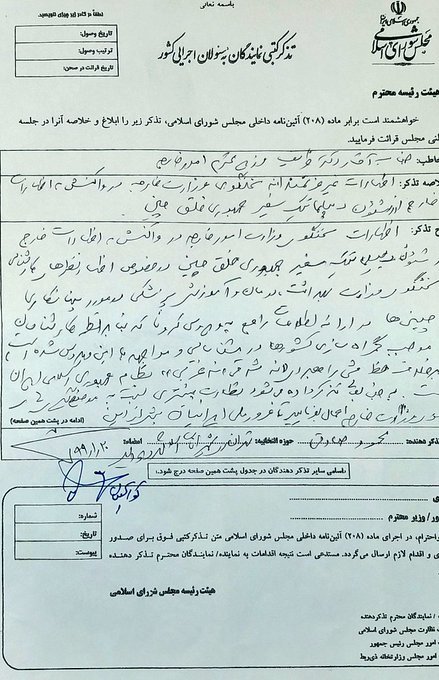 باسمه تعالی
لطفاً در کادر زیر چیزی ننویسید
تاریخ وصول:
ترتیب وصول:
تاریخ قرائت در صحن:
تذکر کتبی نمایندگان به مسئولان اجرایی کشور
جمهوری اسلامی ایران
مجلس شورای اسلامی
هیئت رئیسه محترم
خواهشمند است برابر ماده (۲۰۸) آئین‌نامه داخلی مجلس شورای اسلامی، تذکر زیر را ابلاغ و خلاصه آنرا در جلسه
نی مجلس قرائت فرمایید.
خاطب: جناب آقای دکتر ظریف وزیر محترم امور خارجه
لاصه تذکر: اظهارات غیر عزتمندانه سخنگوی وزارت خارجه در واکنش به اظهارات
خارج از شئون دیپلماتیک سفیر جمهوری خلق چین
ح تذکر: اظهارات سخنگوی وزارت امور خارجه در واکنش به اظهارات خارج
شئون دیپلماتیک سفیر جمهوری خلق چین در خصوص اظهارنظرهای
سخنگوی وزارت بهداشت، درمان و آموزش پزشکی در مورد پنهانکاری
چینی‌ها در ارائه اطلاعات راجع به ویروس کرونا که بنا بر نظر کارشناسان
موجب گمراه سازی کشورها در شناسایی و مواجهه با این ویروس شده است
خلاف خط مشی راهبردی نه شرقی نه غربی نظام جمهوری اسلامی ایران
است. به جنابعالی تذکر داده می‌شود نظارت بیشتری نسبت به
وزارت خارجه اعمال فرمایید تا غرور ملی ایرانیان بیش از این
(ادامه در پشت همین صفحه)
تذکر دهنده: محمود صادقی حوزه انتخابیه: تهران، ری، شمیرانات، اسلامشهر و پردیس امضاء:
۹۹/۱/۲۰
اسامی سایر تذکر دهندگان در جدول پشت همین صفحه درج شود.
شماره:
تاریخ:
پیوست:
ور / وزیر محترم
احترام، در اجرای ماده (۲۰۸) آئین‌نامه داخلی مجلس شورای اسلامی متن تذکر کتبی فوق برای صدور
ی و اقدام لازم ارسال می‌گردد. مستدعی است نتیجه اقدامات به نماینده/ نمایندگان محترم تذکر دهنده
هیئت رئیسه مجلس شورای اسلامی
/ نمایندگان محترم تذکر دهنده
نظارت مجلس شورای اسلامی
امور مجلس رئیس جمهور
امور مجلس وزارتخانه ذی‌ربط